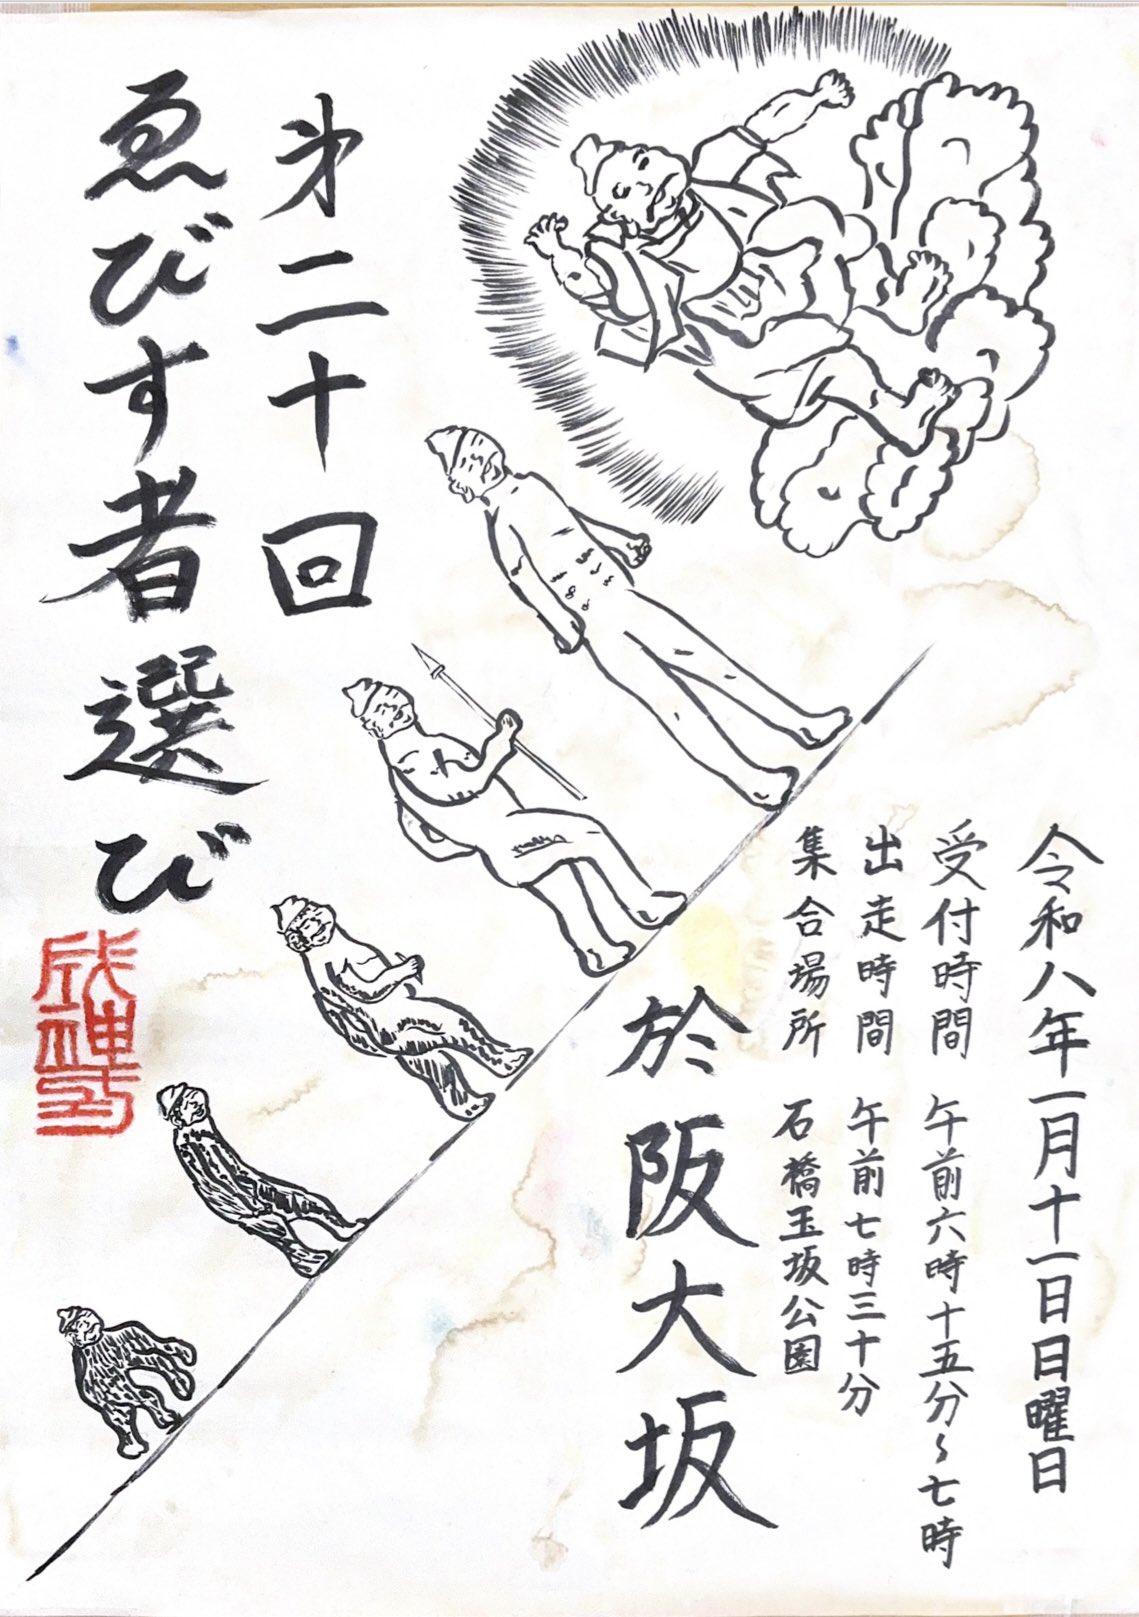 第二十回
ゑびす者選び
令和八年一月十一日日曜日
受付時間 午前六時十五分〜七時
出走時間 午前七時三十分
集合場所 石橋玉坂公園
於 阪大坂